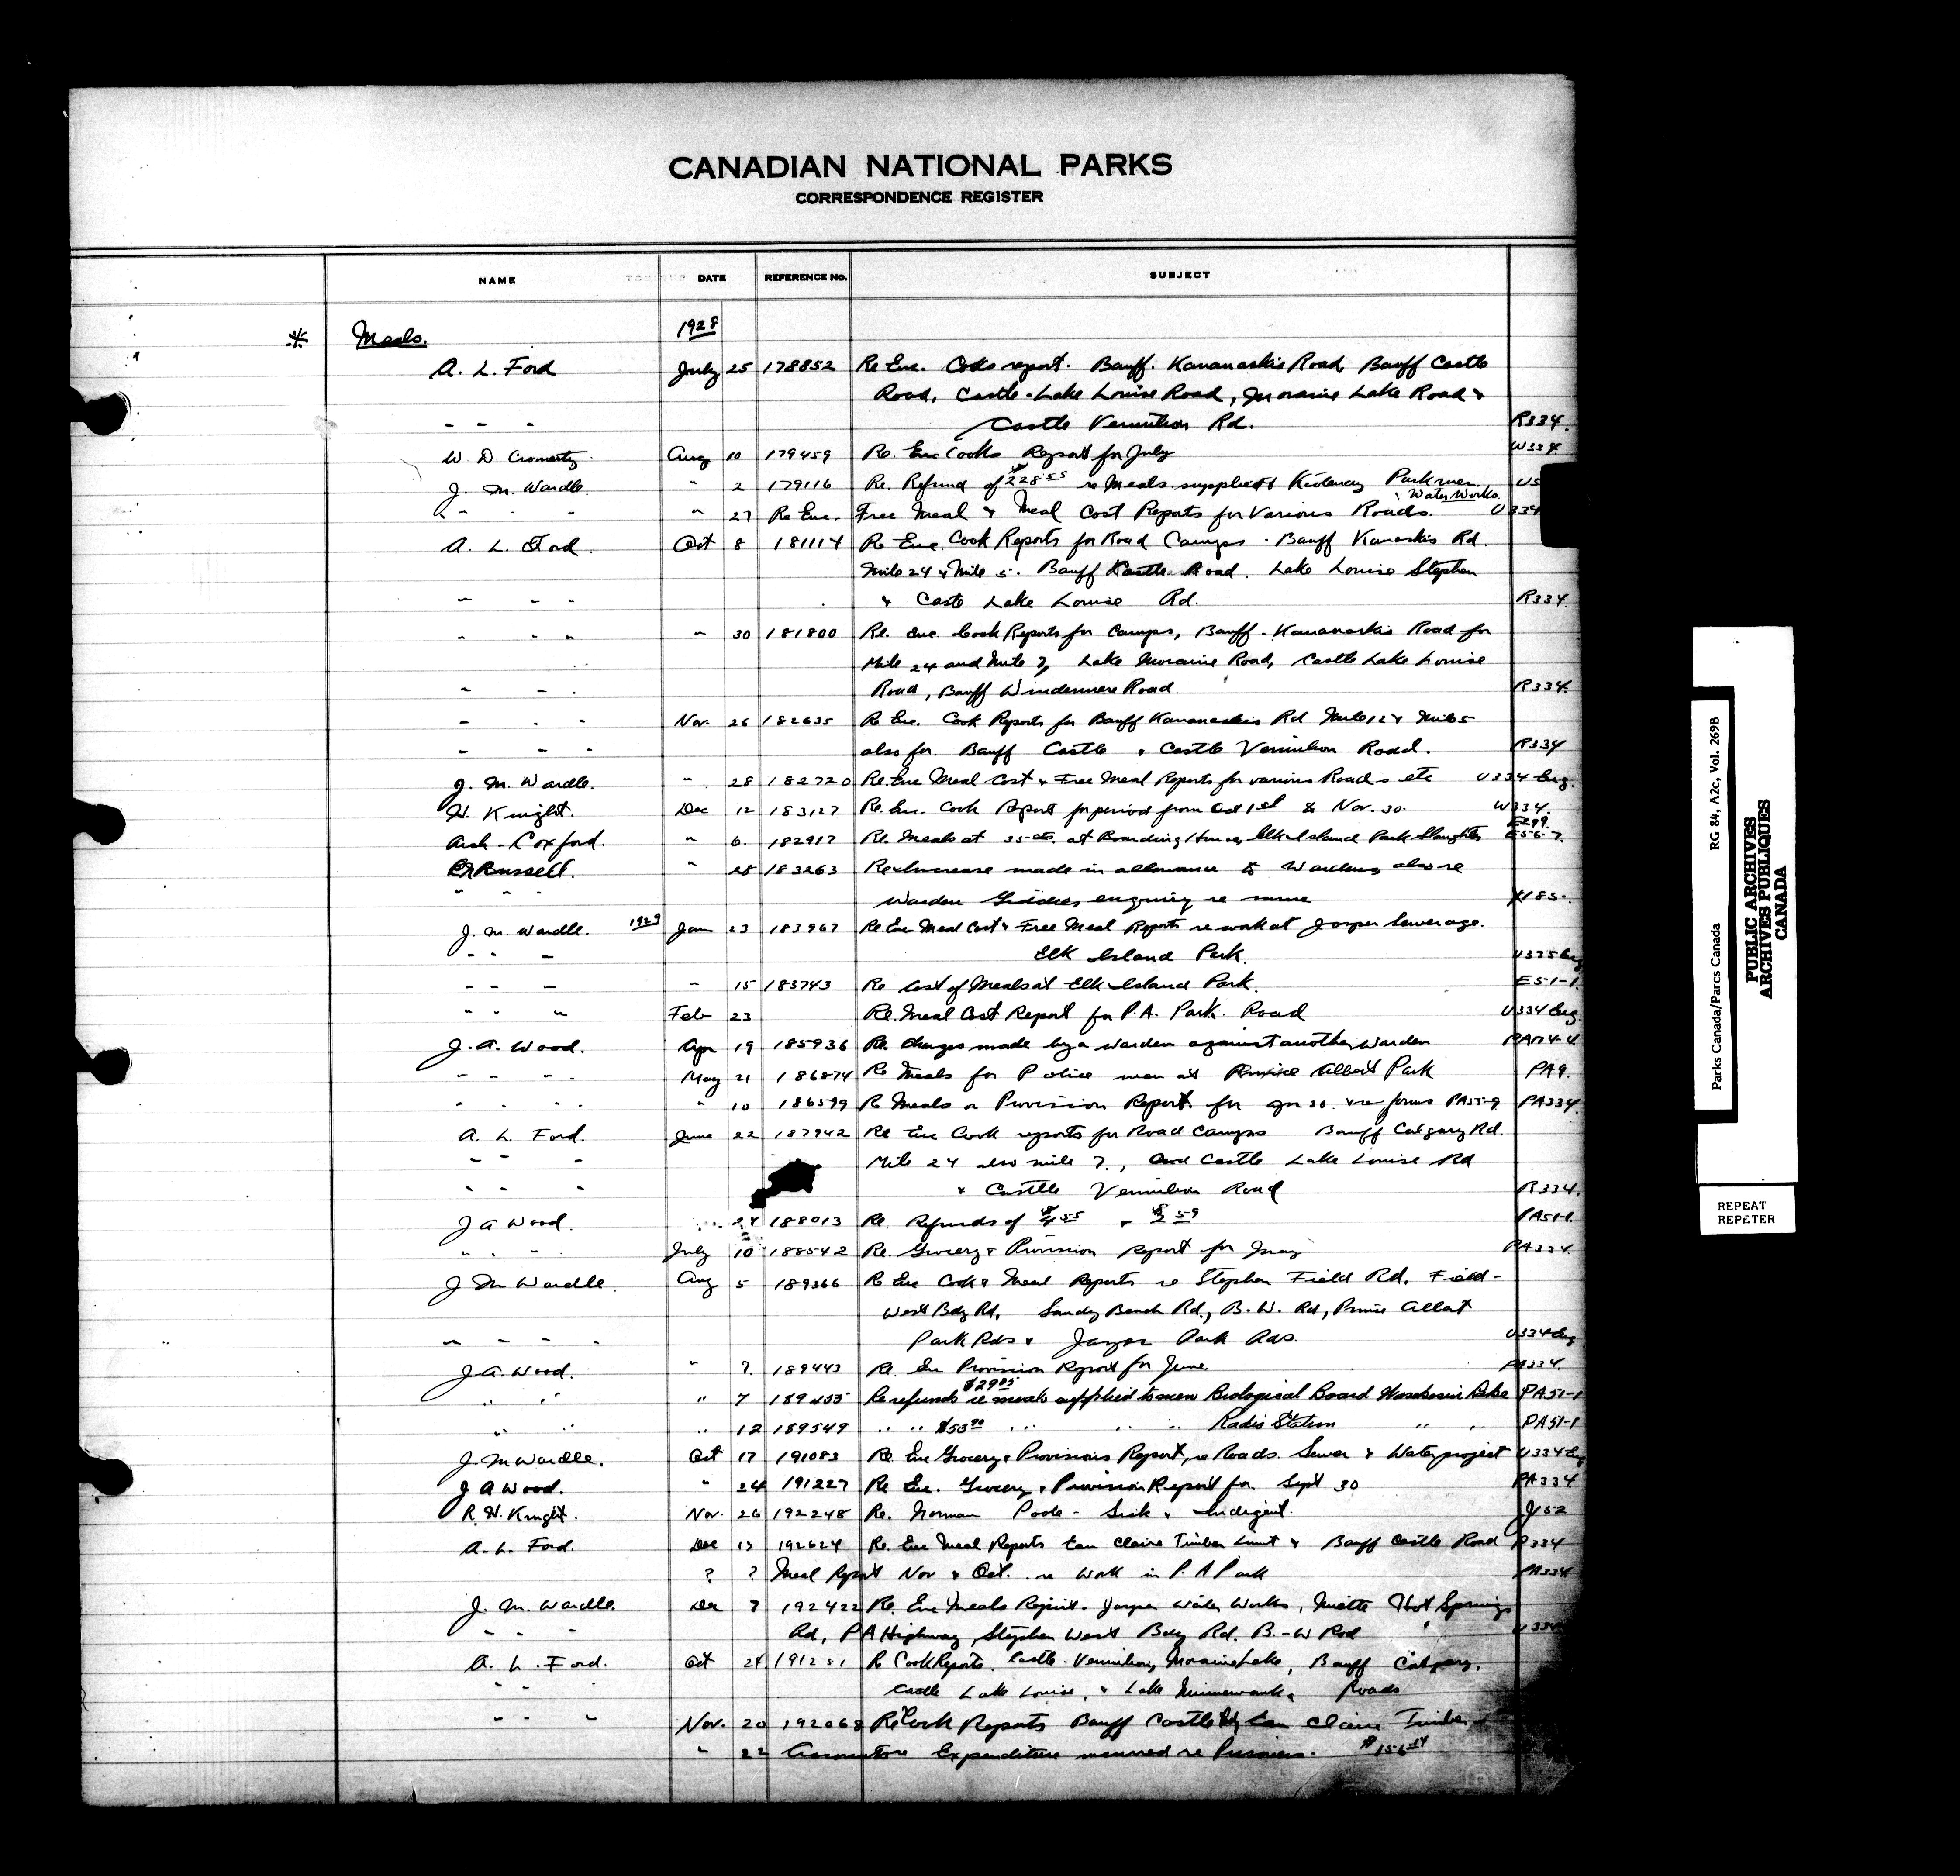 CANADIAN NATIONAL PARKS
CORRESPONDENCE REGISTER
NAME DATE REFERENCE No. SUBJECT
* Meals. 1928
A. L. Ford July 25 178852 Re Enc. Cooks report. Banff. Kananaskis Road, Banff Castle
Road, Castle-Lake Louise Road, Moraine Lake Road &
" " " Castle Vermilion Rd. R334.
W. D. Cromarty Aug 10 179459 Re. Enc Cooks Report for July W334
J. M. Wardle " 2 179116 Re. Refund of $228.55 re Meals supplied Kootenay Park men.
& Water Works.
" " " " 27 Re Enc. Free Meal & Meal Cost Reports for Various Roads. U334
A. L. Ford. Oct 8 181114 Re Enc. Cook Reports for Road Camps. Banff Kanaskis Rd.
Mile 24 & Mile 5. Banff Kastle Road. Lake Louise Stephen
" " " & Caste Lake Louise Rd. R334.
" " " " 30 181800 Re. Enc. Cook Reports for Camps, Banff. Kananaskis Road for
Mile 24 and Mile 7, Lake Moraine Road, Castle Lake Louise
" " " Road, Banff Windermere Road. R334.
" " " Nov. 26 182635 Re Enc. Cook Reports for Banff Kananaskis Rd Mile 12 & Mile 5
" " " also for Banff Castle & Castle Vermilion Road. R334
J. M. Wardle. " 28 182720 Re. Enc Meal Cost & Free Meal Reports for various Roads etc U334 Eng.
H. Knight. Dec 12 183127 Re. Enc. Cook Report for period from Oct 1st & Nov. 30. W334.
E299.
Arch-Coxford. " 6. 182917 Re. Meals at 35 cts. at Boarding House, Elk Island Park Slaughter E56-7.
Russell. " 28 183263 Re Increase made in allowance to Wardens, also re
" " " Warden enquiry re same
J. M. Wardle. 1929 Jan 23 183967 Re. Enc Meal Cost & Free Meal Reports re work at Jasper Sewerage.
" " " Elk Island Park. U335 Eng
" " " " 15 183743 Re Cost of Meals at Elk Island Park. E51-1
" " " Feb 23 Re. Meal Cost Report for P.A. Park Road U334 Eng.
J. A. Wood. Apr 19 185936 Re. Charges made by a warden against another Warden
" " " May 21 186874 Re Meals for Police men at Prince Albert Park PA9.
" " " " 10 186599 Re Meals or Provision Report for Apr 30. & re forms PA55-9 PA334.
A. L. Ford. June 22 187942 Re Enc Cook reports for Road Camps Banff Calgary Rd.
" " " Mile 24 also mile 7., and Castle Lake Louise Rd
" " " & Castlle Vermilion Road R334.
J A Wood. 24 188013 Re. Refunds of $4.55 & $2.59 PA51-1.
" " " July 10 188542 Re. Grocery & Provision Report for May PA334.
J. M. Wardle Aug 5 189366 Re Enc Cook & Meal Reports re Stephen Field Rd. Field-
West Bdy Rd, Sandy Beach Rd, B. W. Rd, Prince Albert
" " " " Park Rds & Jasper Park Rds. U334 Eng
J. A. Wood. " 7. 189443 Re. Enc Provision Report for June PA334.
" " " 7 189455 Re refunds $29.05 re meals supplied to men Biological Board Waskesiu Lake PA51-1
" " " 12 189549 " " $50.90 " " " Radio Station " " PA51-1
J. M Wardle. Oct 17 191083 Re. Enc Grocery & Provisions Report, re Roads. Sewer & Water project U334 Eng
J A Wood. " 24 191227 Re Enc. Grocery & Provision Report for Sept 30 PA334
R. H. Knight. Nov. 26 192248 Re. Norman Poole - Sick & Indigent. J152
A. L. Ford. Dec 13 192624 Re. Enc Meal Reports Eau Claire Timber Limit & Banff Castle Road R334
? ? Meal Report Nov & Oct. re Work in P. A Park PA334
J. M. Wardle. Dec 7 192422 Re. Enc Meals Report. Jasper Water Works, Miette Hot Springs
" " " Rd, P A Highway, Stephen West Bdy Rd. B.-W Rod U334
A. L. Ford. Oct 24 Re Cook Reports. Castle-Vermilion, Moraine Lake, Banff Calgary.
" " Castle Lake Louise, & Lake Minnewanka Roads
" " " Nov. 20 192068 Re Cook Reports Banff Castle & Eau Claire Timber
" 22 Expenditure incurred re $156.54
RG 84, A2c, Vol. 269B
Parks Canada/Parcs Canada
PUBLIC ARCHIVES
ARCHIVES PUBLIQUES
CANADA
REPEAT
REPETER